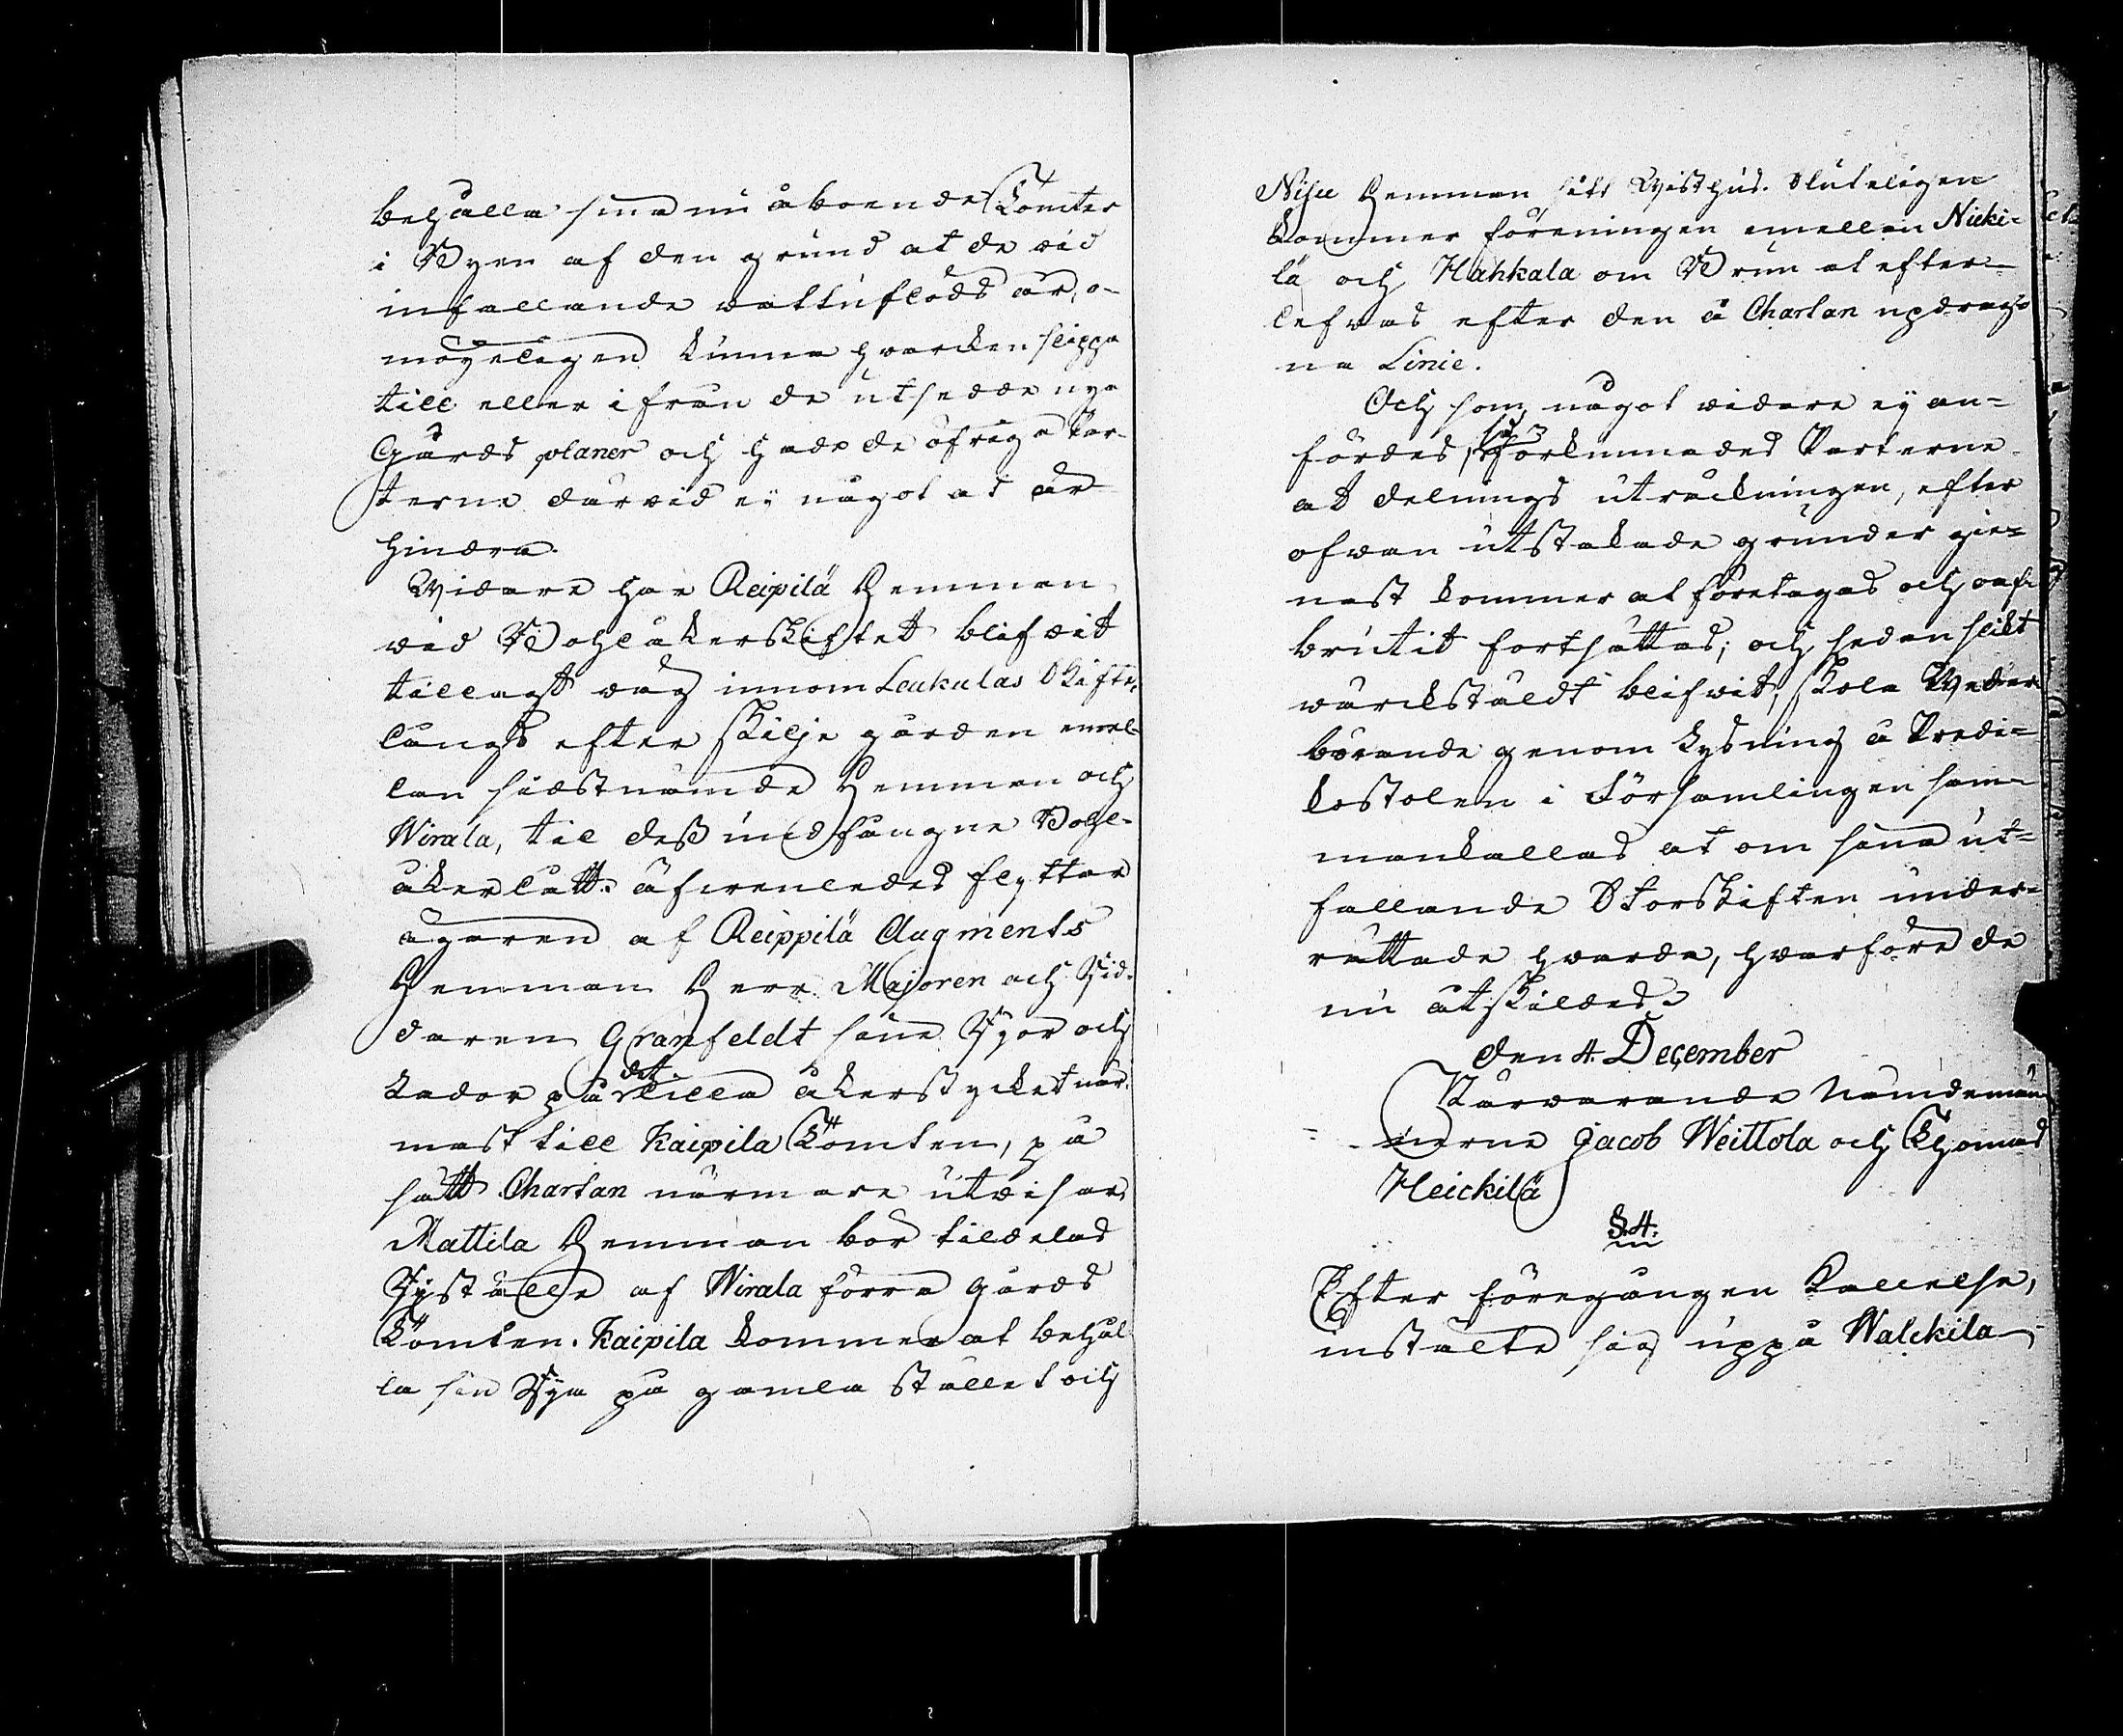 behålla sina nu åboende Tomter
i Byen af den grund at de vid
infallande vattuflods år, o-
möyeligen kunna hvarken slippa
till eller ifrån de utsedde nya
Gårds planer och hade de öfriga Par-
terne därvid ey något at År-
hindra.
Widare har Reipilä Hemman
vid Bohlåkerskiftet blifvit
tillagt väg innom Leukulas Skifte,
längs efter skilje gården emel-
lan sidstnämde Hemman och
Wirala, til dess undfångne Bohl-
åker lått. äfvenledes flyttar
ägaren af Reippilä Augments
Hemman Herr Majoren och Rid-
daren Granfeldt sine Ryor och
Lador på det lilla åkerstycket när-
mast till Kaipila Tomten, på
sätt Chartan närmare utvisar.
Mattila Hemman bör tildelas
Ryställe af Wirala förra gårds
Tomten. Kaipila kommer at behål-
la sin Rya på gamla stället och
Nisu Hemman sitt Wisthus. Sluteligen
kommer föreningen emellan Nicki-
lä och Hahkala om Brun at efter-
lefvas efter den å Chartan updrag-
na Linie.
Och som något vidare ey an-
fördes, så förkunnades Parterne
at delnings uträckningen, efter
ofvan utstakade grunder gie-
nast kommer at företagas och oaf-
brutit fortsättas; och sedan slikt
värckstäldt blifvit, skola Weder-
börande genom Lysning å Predi-
kostolen i Församlingen sam-
mankallas at om sina ut-
fallande Storskiften under-
rättade hvarda, hvarföre de
nu åtskildes.
den 4. December
Närvarande Nämdemän-
nerne Jacob Weittola och Thomas
Heickilä
§. 4.
Efter föregången Kallelse,
instälte sig uppå Walckila